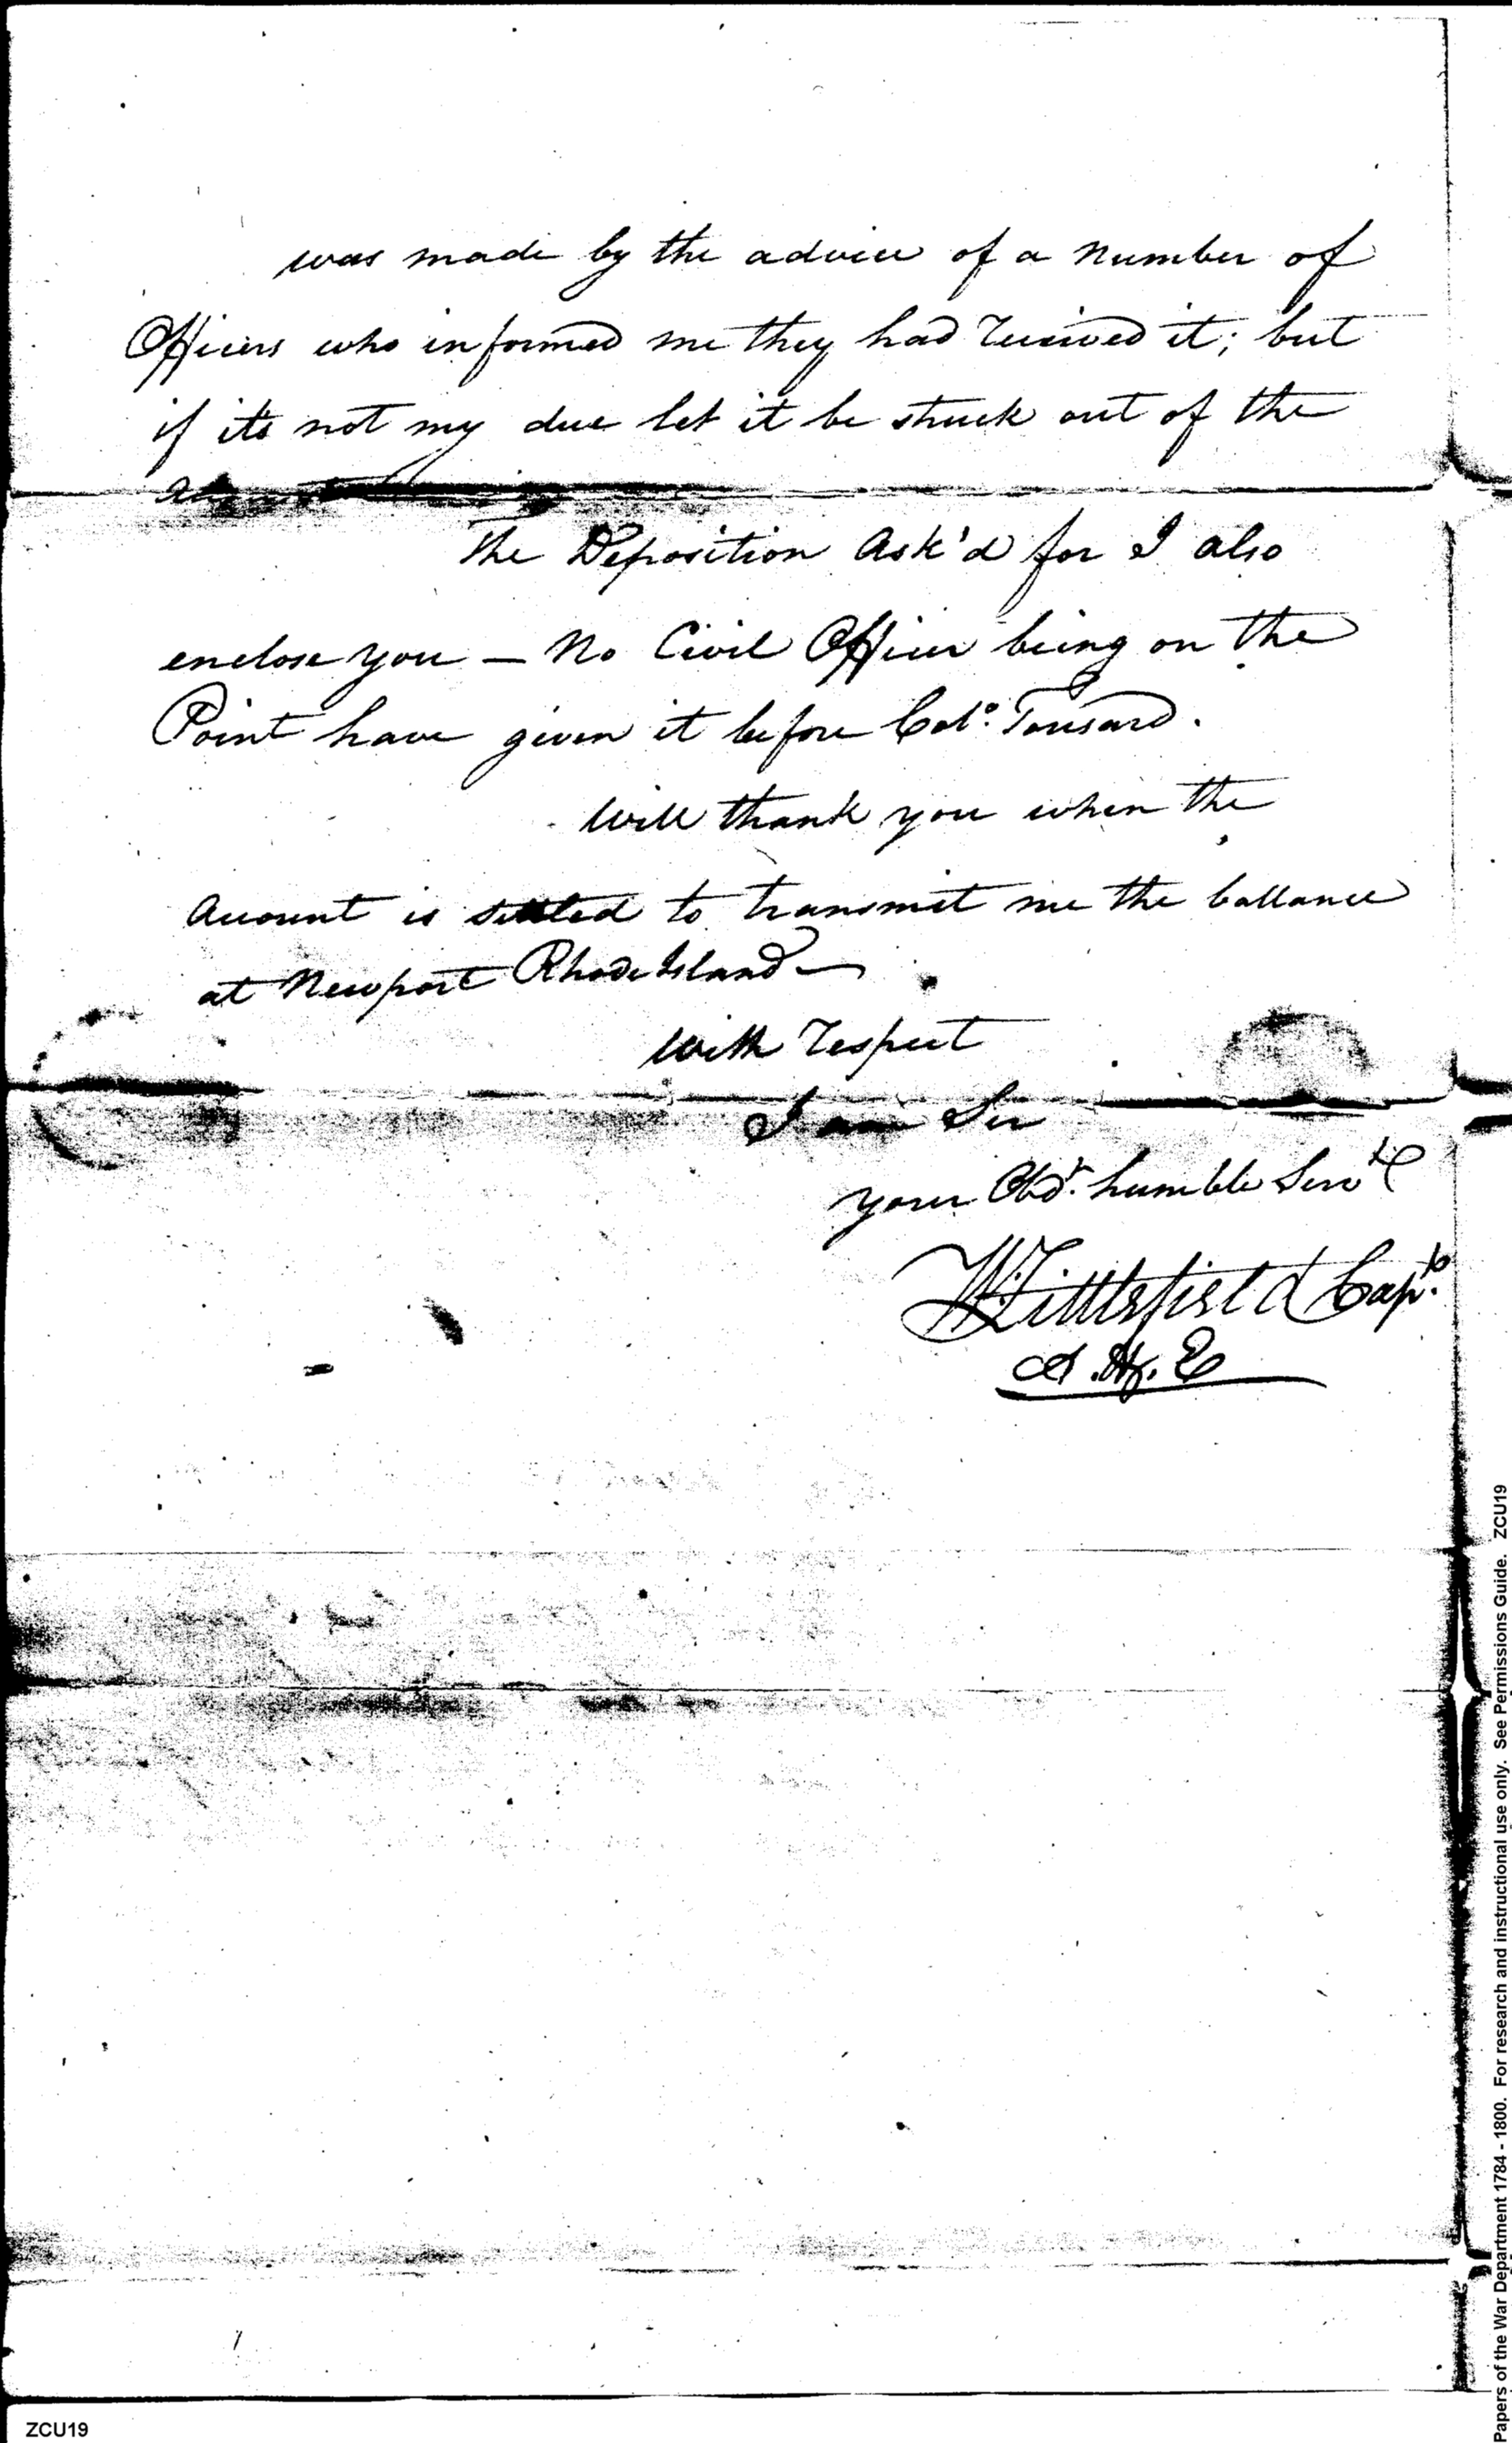 was made by the advice of a number of
Officers who informed me they had received it; but
if its not my due let it be struck out of the
The Deposition Ask'd for I also
enclose you — No Civil Officer being on the
Point have given it before Colo. Tousard.
Will thank you when the
Account is settled to transmit me the ballance
at Newport Rhode Island —
With respect
I am Sir
your Obdt. humble Servt
W. Littlefield Capt.
Papers of the War Department 1784 - 1800. For research and instructional use only. See Permissions Guide. ZCU19
ZCU19